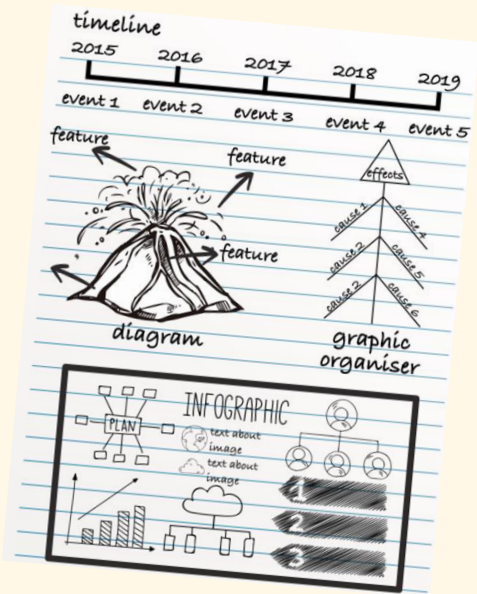 timeline
2015 2016 2017 2018 2019
event 1 event 2 event 3 event 4 event 5
feature
feature
feature
diagram
effects
cause 1
cause 4
cause 2
cause 5
cause 2
cause 6
graphic
organiser
PLAN
INFOGRAPHIC
text about
image
text about
image
1
2
3